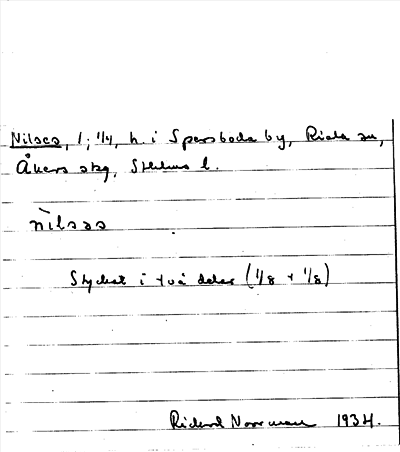 Nilses, 1; 1/4, h. i Spersboda by, Riala sn,
Åkers skg, Sthlms l.
nìlsas
Styckat i två delar (1/8 + 1/8)
Rickard Noorman 1934.